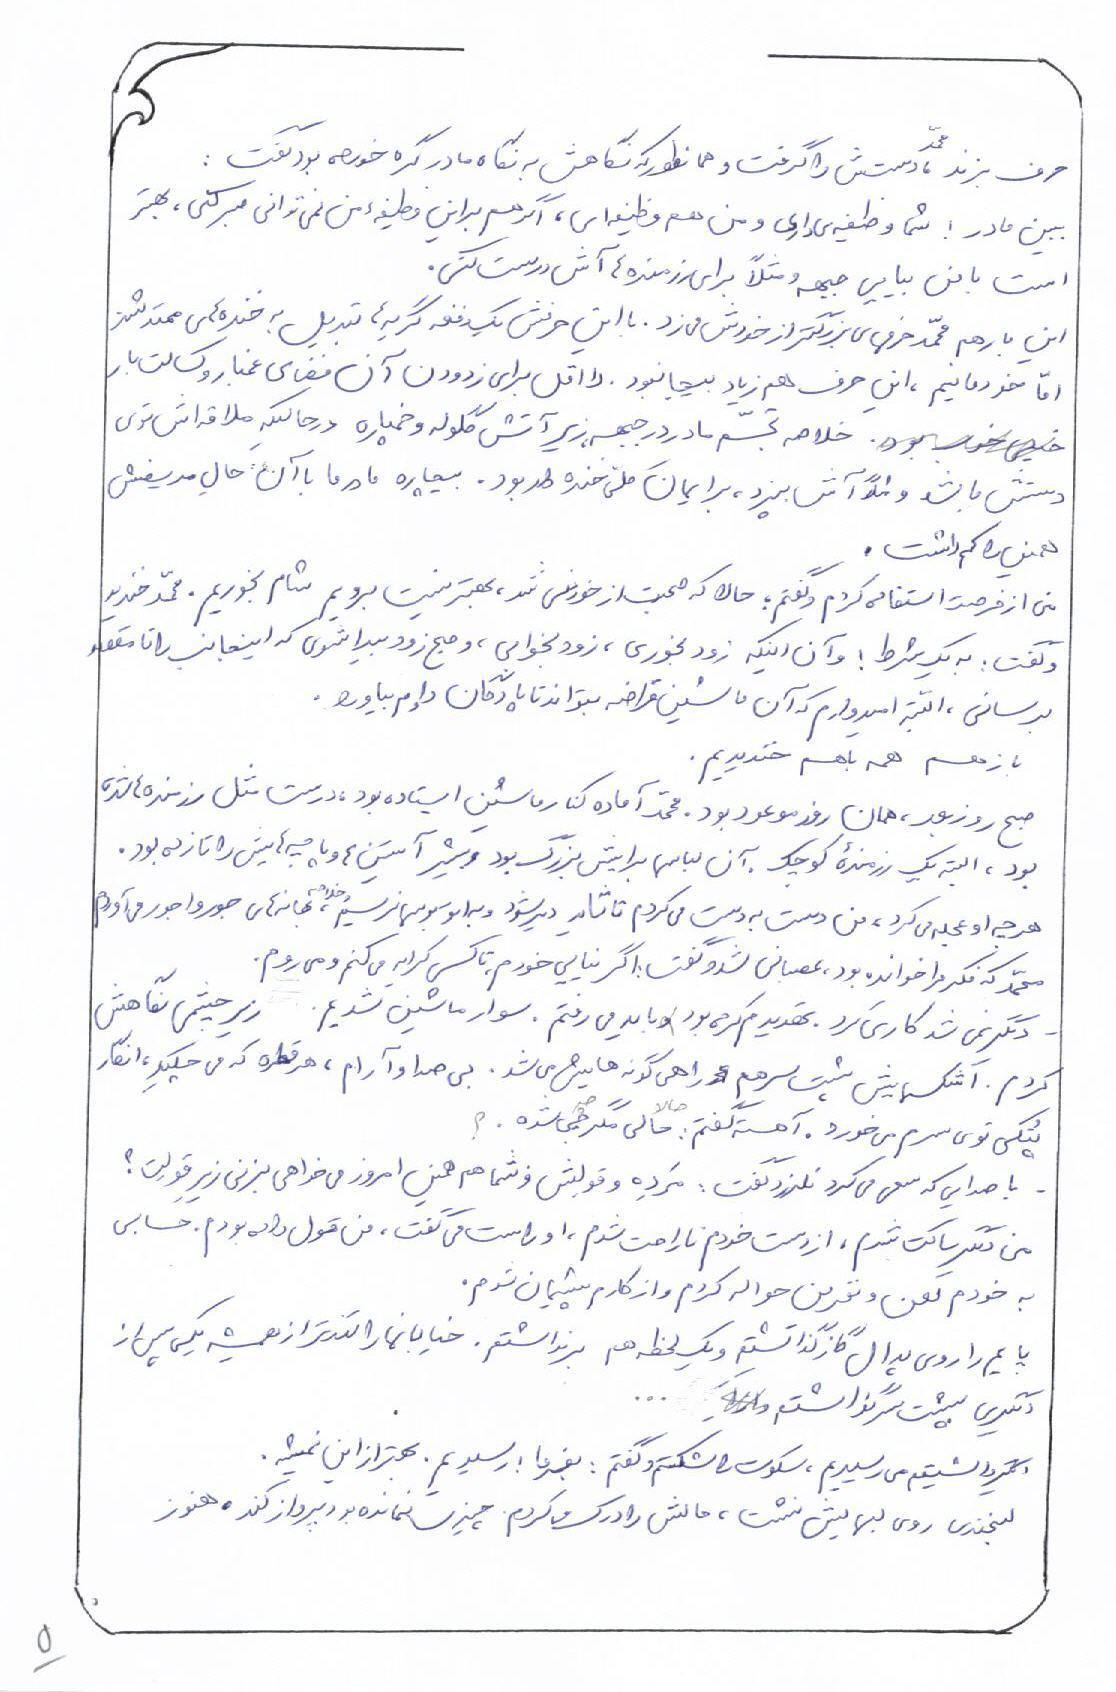 حرف بزند، محمّد دستش را گرفت و همانطور که نگاهش به نگاه مادر گره خورده بود گفت :
ببین مادر ! شما وظیفه‌ی داری و من هم وظیفه‌ای ، اگر هم برای این وظیفهٔ من نمی توانی صبر کنی ، بهتر
است با من بیایی جبهه و مثلاً برای رزمنده ها آش درست کنی .
این بار هم محمّد حرفهای بزرگتر از خودش می زد . با این حرفش یک دفعه گریه ها تبدیل به خنده های ممتد شد
امّا خودمانیم ، این حرف هم زیاد بیجا نبود . لااقل برای زدودن آن فضای غمبار و کسالت بار
خیلی خوب بود . خلاصه تجسّم مادر در جبهه زیر آتش گلوله و خمپاره در حالیکه ملاقه اش توی
دستش باشد و مثلاً آش بپزد ، برایمان خیلی خنده دار بود . بیچاره مادر ما با آن حال مریضش
همین را کم داشت .
من از فرصت استفاده کردم و گفتم : حالا که صحبت از خوردنی شد ، بهتر نیست برویم شام بخوریم . محمّد خندید
و گفت : به یک شرط ! و آن اینکه زود بخوری ، زود بخوابی ، و صبح زود بیدار شوی که اینجانب را تا مقصد
برسانی ، البتّه امیدوارم که آن ماشین قراضه بتواند تا پادگان دوام بیاورد .
باز هم همه با هم خندیدیم .
صبح روز بعد ، همان روز موعود بود . محمّد آماده کنار ماشین ایستاده بود ، درست مثل رزمنده ها شده
بود ، البته یک رزمندهٔ کوچک . آن لباسها برایش بزرگ بود و سر آستین ها و پاچه هایش را تا زده بود .
هر چه او عجله می کرد ، من دست به دست می کردم تا شاید دیر شود و به اتوبوسها نرسیم ، خلاصه بهانه های جورواجور می آوردم
محمّد که فکر مرا خوانده بود ، عصبانی شد و گفت : اگر نیایی خودم تاکسی کرایه می کنم و می روم .
- دیگر نمی شد کاری کرد . تهدیدم کرده بود و باید می رفتم . سوار ماشین شدیم . زیر چشمی نگاهش
کردم . اشکهایش پشت سر هم راهی گونه هایش می شد . بی صدا و آرام ، هر قطره که می چکید ، انگار
پتکی توی سرم می خورد . آهسته گفتم : حالا مگر چی شده . ؟
- با صدایی که سعی می کرد نلرزد گفت : مَرده و قولش و شما هم همین امروز می خواهی بزنی زیر قولت ؟
من دیگر ساکت شدم ، از دست خودم ناراحت شدم ، او راست می گفت ، من قول داده بودم . حسابی
به خودم لعن و نفرین حواله کردم و از کارم پشیمان شدم .
پایم را روی پدال گاز گذاشتم و یک لحظه هم برنداشتم . خیابانها را تندتر از همیشه یکی پس از
دیگری پشت سر گذاشتم ...
دیگر داشتیم می رسیدیم ، سکوت را شکستم و گفتم : بفرما ! رسیدیم . بهتر از این نمیشه .
لبخندی روی لبهایش نشست ، حالش را درک می کردم . چیزی نمانده بود پرواز کند . هنوز
۵